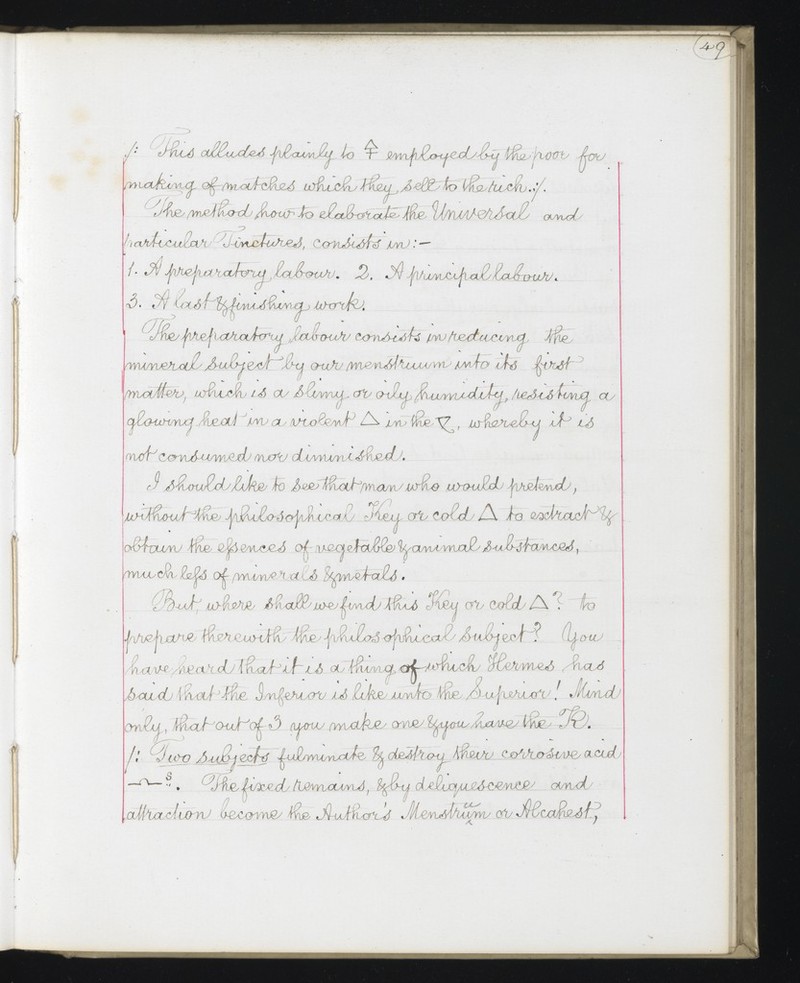 49
/: This alludes plainly to 🜍 employed by the poor for
making of matches which they sell to the rich.:/.
The method how to elaborate the Universal and
particular Tinctures, consists in:—
1. A preparatory labour. 2. A principal labour.
3. A last & finishing work.
The preparatory labour consists in reducing the
mineral subject by our menstruum into its first
matter, which is a slimy or oily humidity, resisting a
glowing heat in a violent △ in the , whereby it is
not consumed nor diminished.
I should like to see that man who would pretend,
without the philosophical Key or cold △ to extract &
obtain the essences of vegetable & animal substances,
much less of minerals & metals.
But, where shall we find this Key or cold △? to
prepare therewith the philosophical subject? You
have heard that it is a thing of which Hermes has
said that the Inferior is like unto the Superior! Mind
only, that out of 3 you make one & you have the K.
/: Two subjects fulminate & destroy their corrosive acid
s. The fixed remains, & by deliquescence and
attraction become the Author's Menstruum or Alcahest,